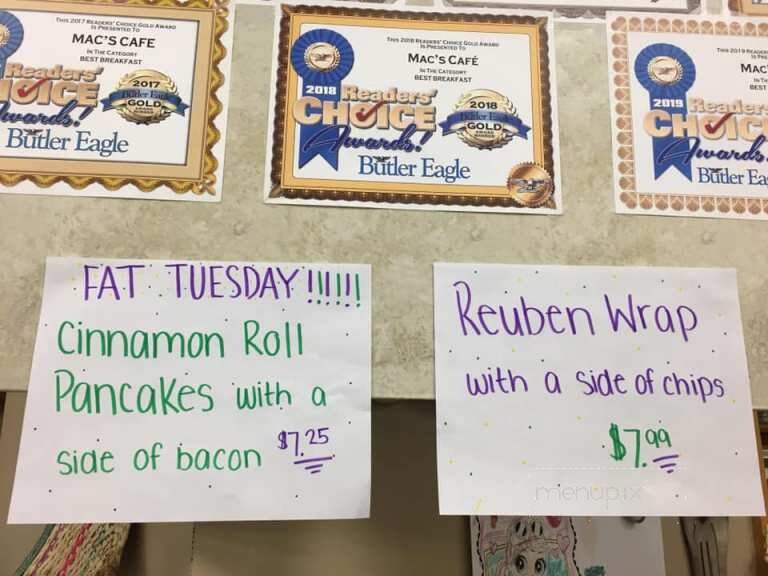 This 2017 Readers' Choice Gold Award
is Presented to
MAC'S CAFE
In the Category
BEST BREAKFAST
Readers'
CHOICE
Awards!
2017
Butler Eagle
GOLD
Butler Eagle
This 2018 Readers' Choice Gold Award
is Presented to
MAC'S CAFÉ
In the Category
BEST BREAKFAST
2018
Readers'
CHOICE
Awards!
2018
Butler Eagle
GOLD
Butler Eagle
This 2019 Readers
MAC'
In the
BEST
2019
Readers
CHOIC
Awards!
Butler Ea
FAT TUESDAY !!!!!!
Cinnamon Roll
Pancakes with a
side of bacon $7.25
Reuben Wrap
with a side of chips
$7.99
menupix